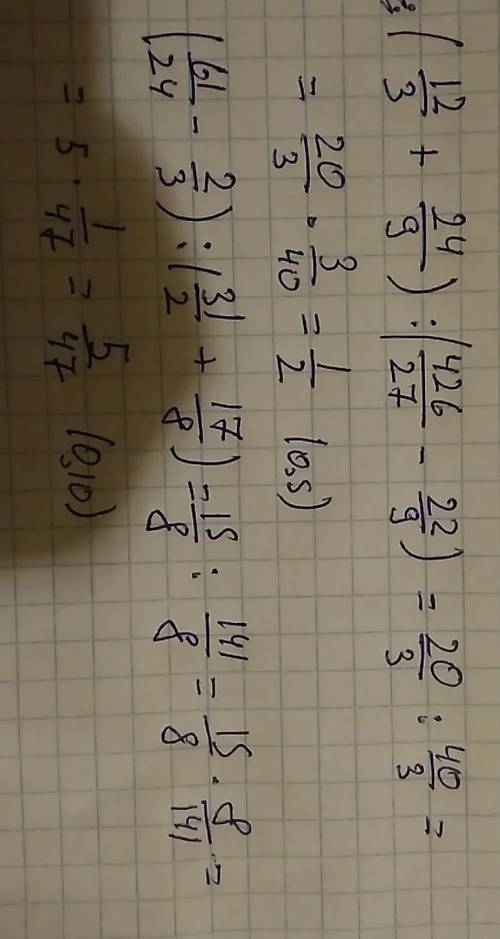 ( 12/3 + 24/9 ) : ( 426/27 - 22/9 ) = 20/3 : 40/3 =
= 20/3 · 3/40 = 1/2 (0,5)
( 61/24 - 2/3 ) : ( 31/2 + 17/8 ) = 15/8 : 141/8 = 15/8 · 8/141 =
= 5 · 1/47 = 5/47 (0,10)